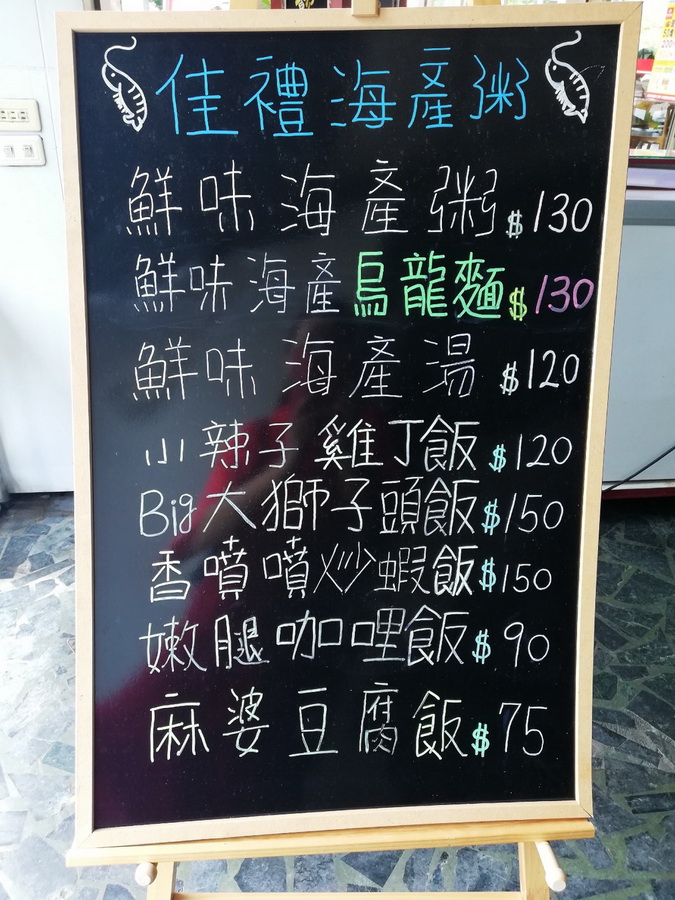 佳禮海產粥
鮮味海產粥$130
鮮味海產烏龍麵$130
鮮味海產湯$120
小辣子雞丁飯$120
Big大獅子頭飯$150
香噴噴炒蝦飯$150
嫩腿咖哩飯$90
麻婆豆腐飯$75